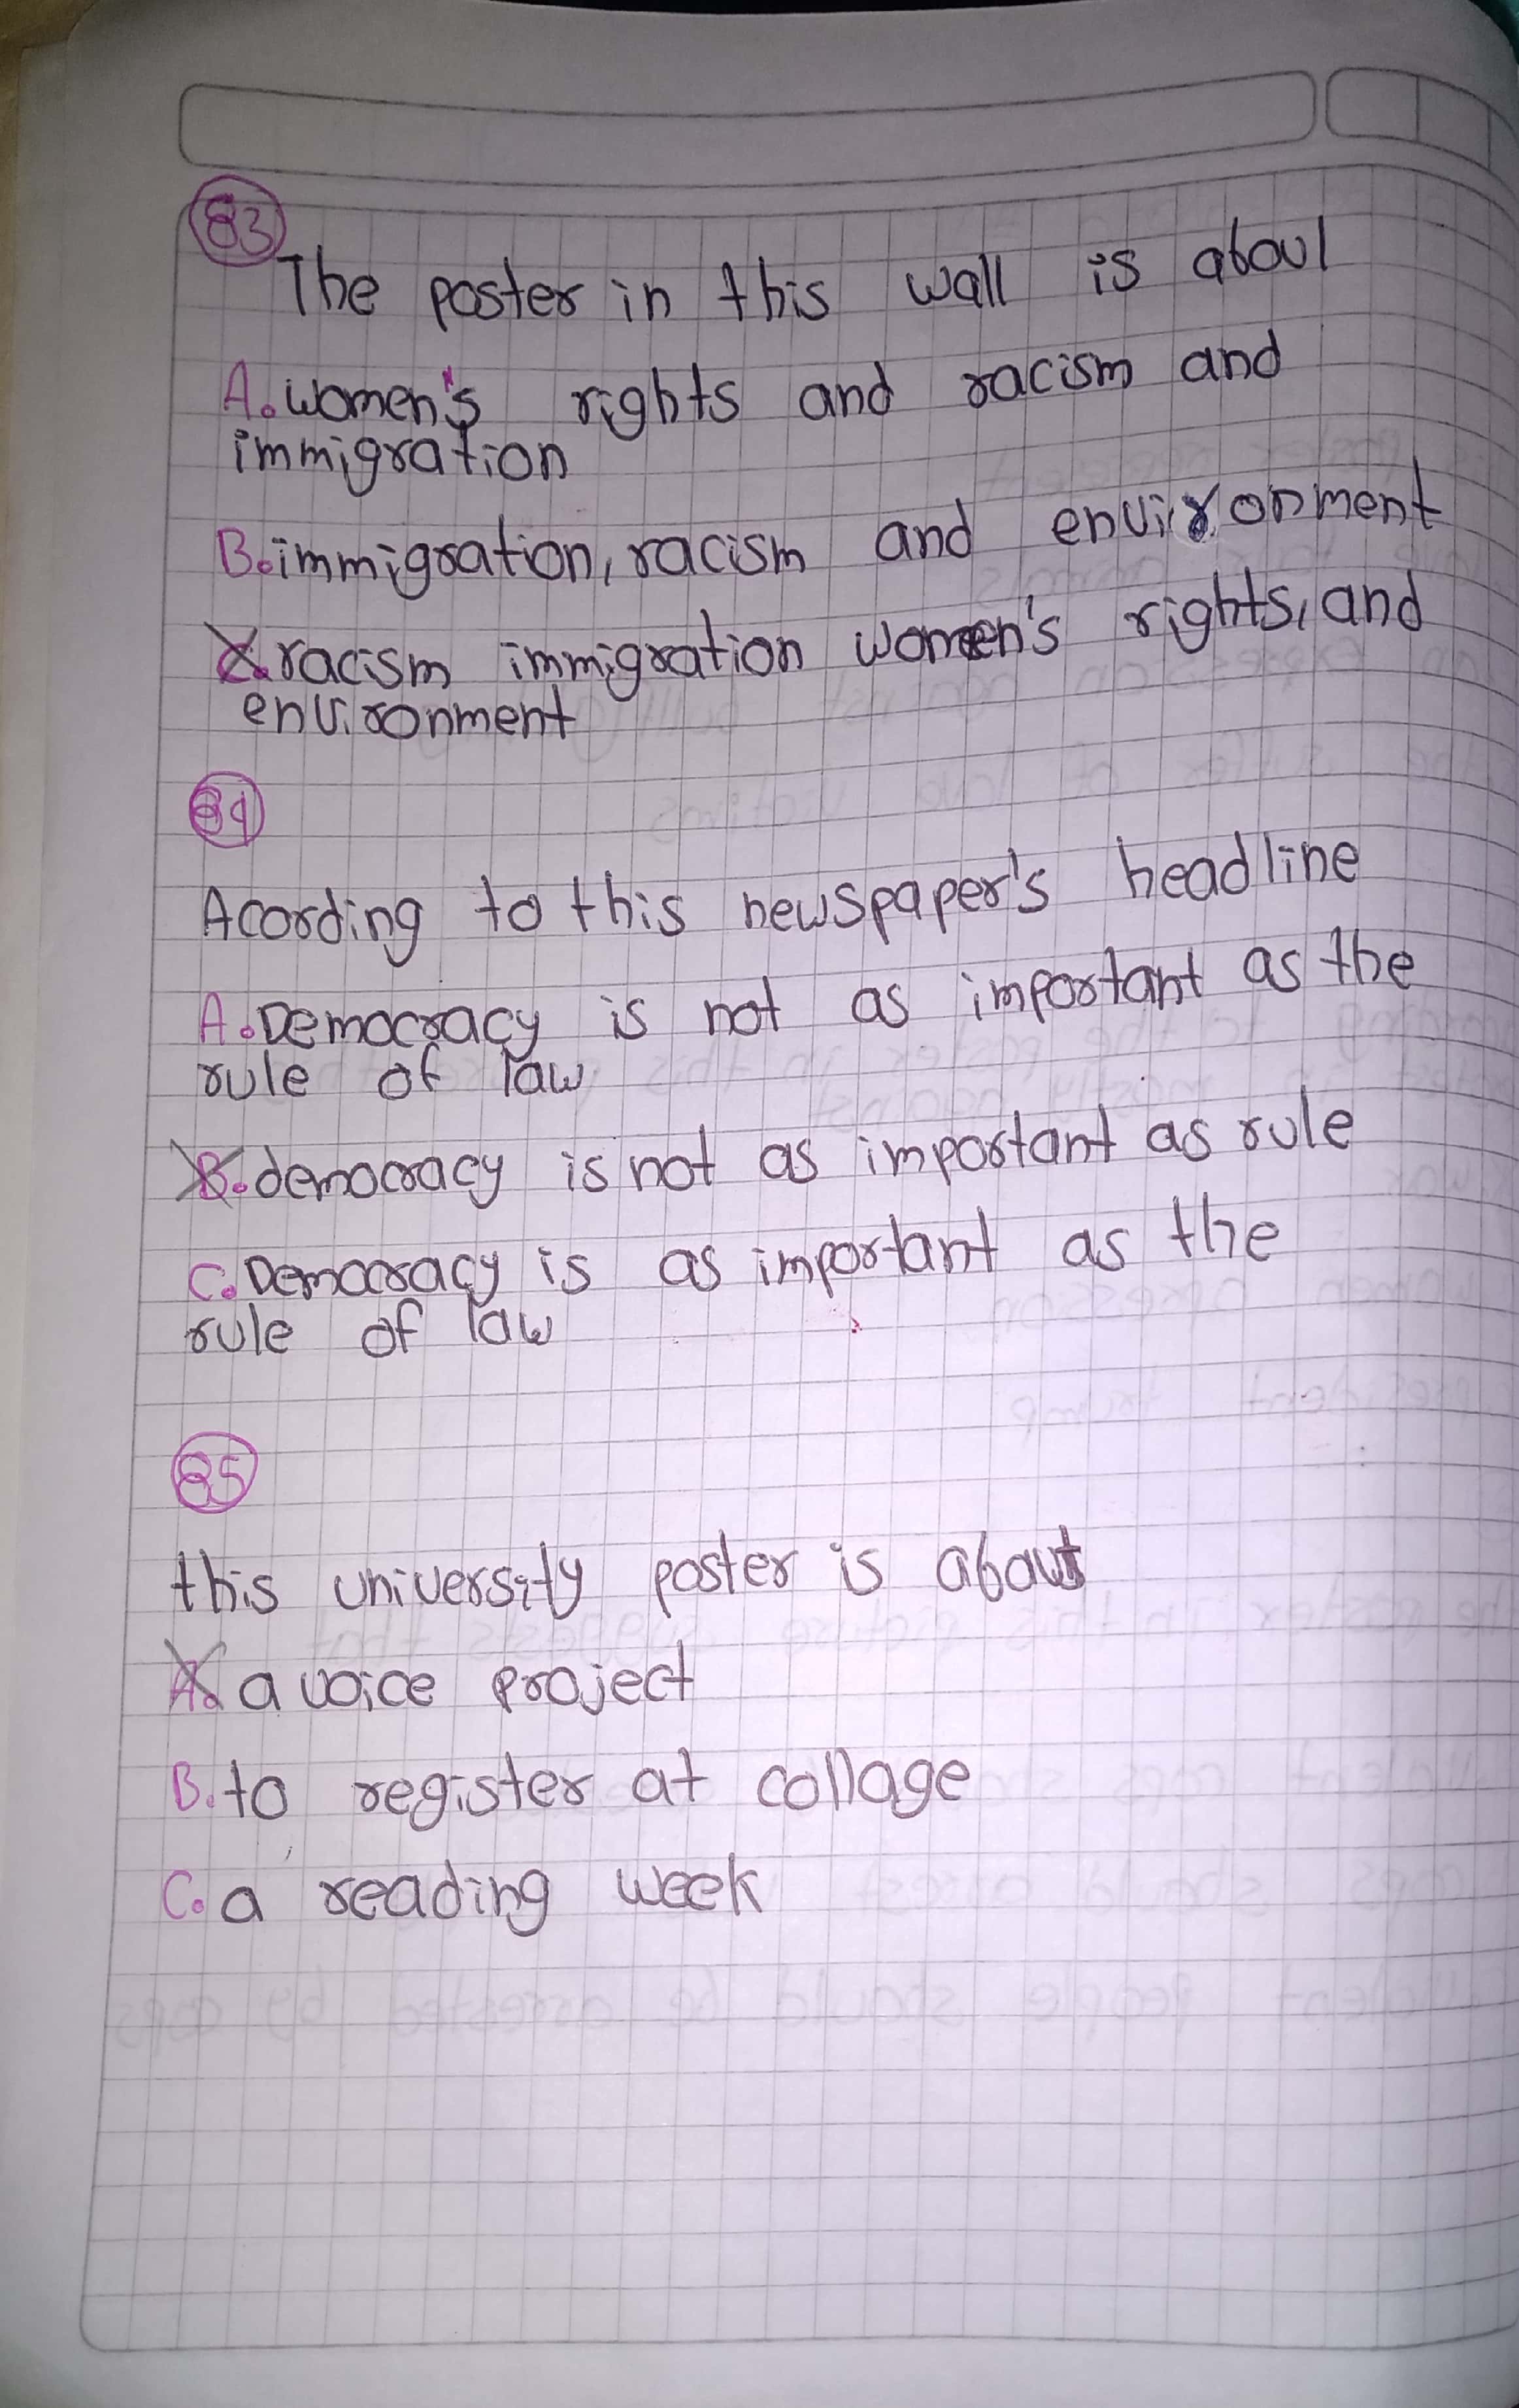 83
The poster in this wall is about
A. women's rights and racism and
immigration
B. immigration, racism and environment
C. racism immigration women's rights, and
environment
84
Acording to this newspaper's headline
A. Democracy is not as important as the
rule of law
B. democracy is not as important as rule
C. Democracy is as important as the
rule of law
85
this university poster is about
A. a voice project
B. to register at collage
C. a reading week